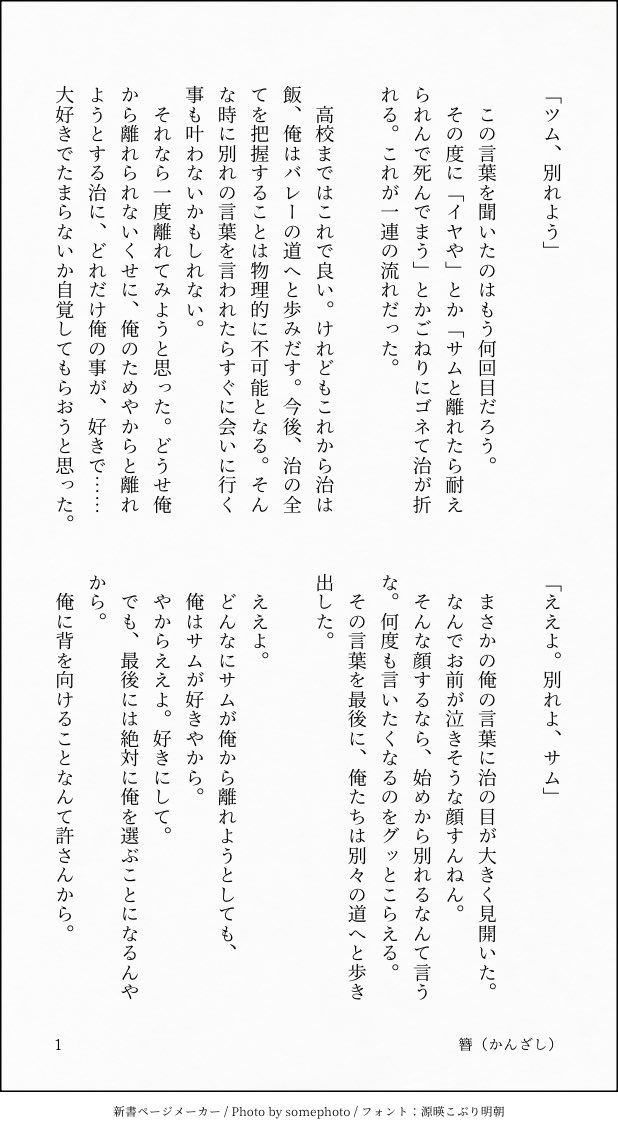 「ツム、別れよう」
この言葉を聞いたのはもう何回目だろう。
その度に「イヤや」とか「サムと離れたら耐え
られんで死んでまう」とかごねりにゴネて治が折
れる。これが一連の流れだった。
高校まではこれで良い。けれどもこれから治は
飯、俺はバレーの道へと歩みだす。今後、治の全
てを把握することは物理的に不可能となる。そん
な時に別れの言葉を言われたらすぐに会いに行く
事も叶わないかもしれない。
それなら一度離れてみようと思った。どうせ俺
から離れられないくせに、俺のためやからと離れ
ようとする治に、どれだけ俺の事が、好きで……
大好きでたまらないか自覚してもらおうと思った。
「ええよ。別れよ、サム」
まさかの俺の言葉に治の目が大きく見開いた。
なんでお前が泣きそうな顔すんねん。
そんな顔するなら、始めから別れるなんて言う
な。何度も言いたくなるのをグッとこらえる。
その言葉を最後に、俺たちは別々の道へと歩き
出した。
ええよ。
どんなにサムが俺から離れようとしても、
俺はサムが好きやから。
やからええよ。好きにして。
でも、最後には絶対に俺を選ぶことになるんや
から。
俺に背を向けることなんて許さんから。
簪（かんざし）
1
新書ページメーカー / Photo by somephoto / フォント：源暎こぶり明朝